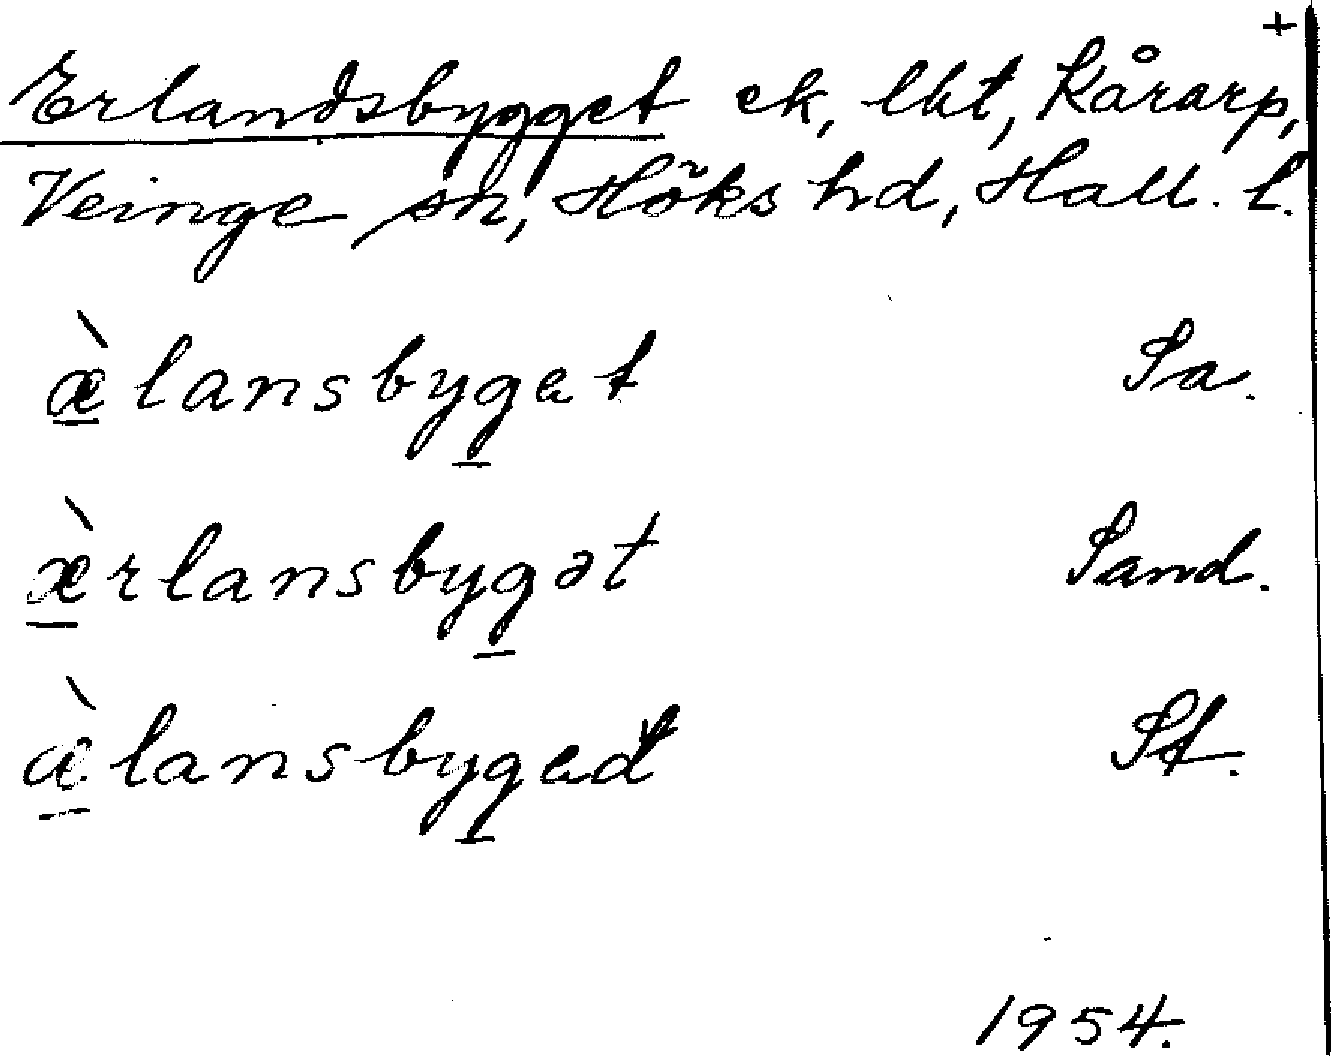 +
Erlandsbygget ek, lht, Kårarp,
Veinge sn, Höks hd, Hall. l.
æ̀lansbyget Sa.
æ̀rlansbygət Sand.
æ̀lansbyged St.
1954.